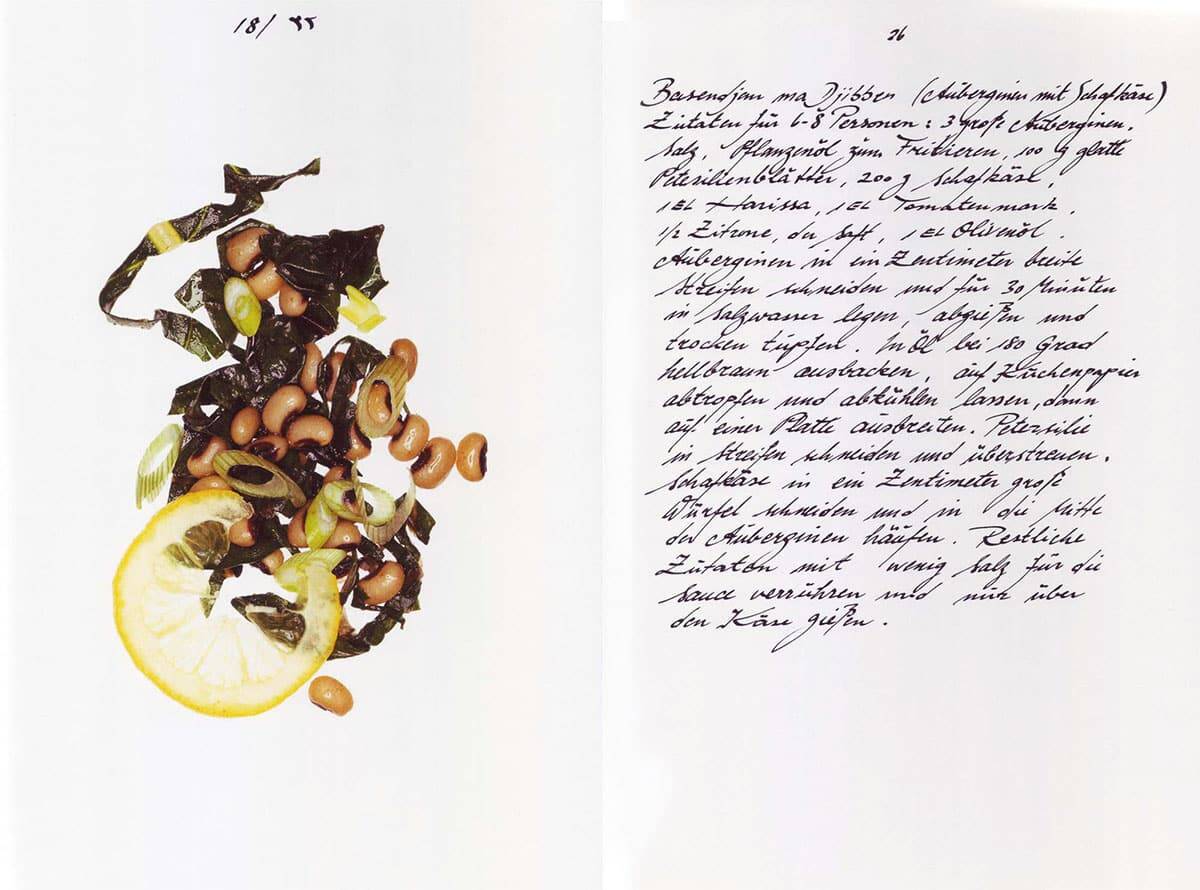 18/ ٢٢
26
Basendjan ma Djibben (Auberginen mit Schafkäse)
Zutaten für 6-8 Personen : 3 große Auberginen,
Salz, Pflanzenöl zum Fritieren, 100 g glatte
Petersilienblätter, 200 g Schafkäse,
1 EL Harissa, 1 EL Tomatenmark,
1/2 Zitrone, der Saft, 1 EL Olivenöl.
Auberginen in ein Zentimeter breite
Streifen schneiden und für 30 Minuten
in Salzwasser legen, abgießen und
trocken tupfen. In Öl bei 180 Grad
hellbraun ausbacken, auf Küchenpapier
abtropfen und abkühlen lassen, dann
auf einer Platte ausbreiten. Petersilie
in Streifen schneiden und überstreuen.
Schafkäse in ein Zentimeter große
Würfel schneiden und in die Mitte
der Auberginen häufen. Restliche
Zutaten mit wenig Salz für die
Sauce verrühren und nur über
den Käse gießen.